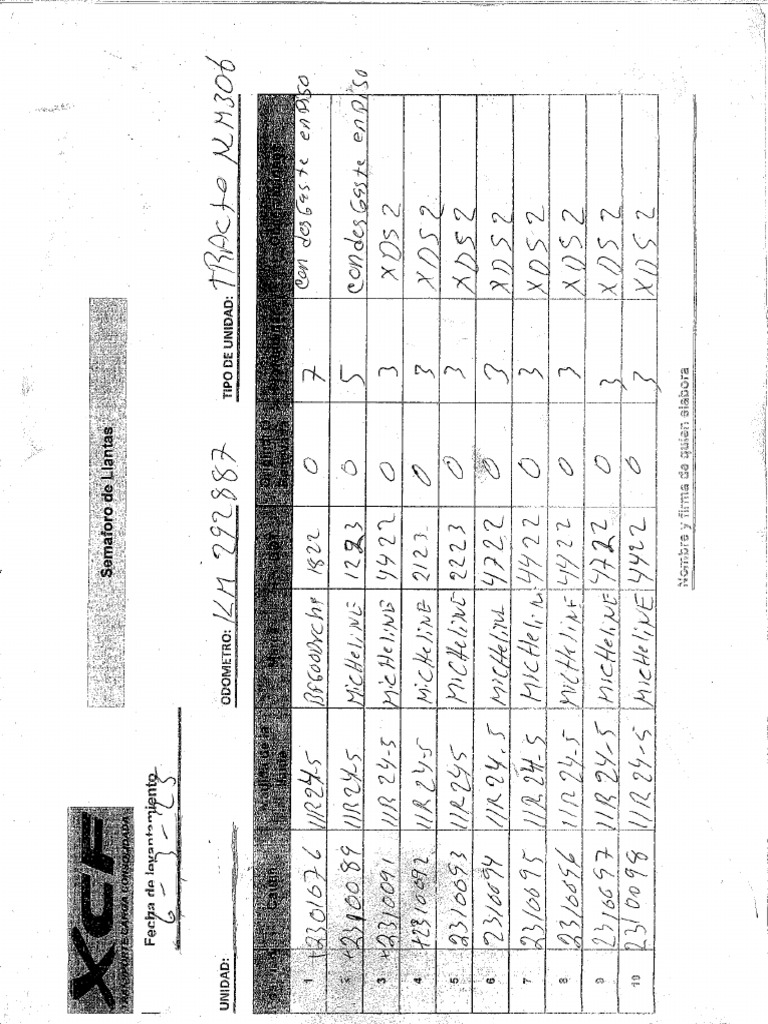 XCF
TRANSPORTE CARGA CONSOLIDADA
Semaforo de Llantas
Fecha de levantamiento
6-3-23
UNIDAD: ODOMETRO: KM 292887 TIPO DE UNIDAD: TRACTO NM306
1 2301676 11R24-5 1822 0 7 con desgaste en piso
2 +2310089 11R24-5 MicHeliNE 1223 0 5 con desgaste en piso
3 +2310091 11R24-5 MicHeliNE 4422 0 3 XDS2
4 +2310092 11R24-5 MicHeliNE 2123 0 3 XDS2
5 2310093 11R245 MicHeliNE 2223 0 3 XDS2
6 2310094 11R24.5 MicHeliNE 4722 0 3 XDS2
7 2310095 11R24-5 MicHeliN 4422 0 3 XDS2
8 2310096 11R24-5 MicHeliNE 4422 0 3 XDS2
9 2310097 11R24-5 MicHeliNE 4722 0 3 XDS2
10 2310098 11R24-5 MicHeliNE 4422 0 3 XDS2
Nombre y firma de quien elabora